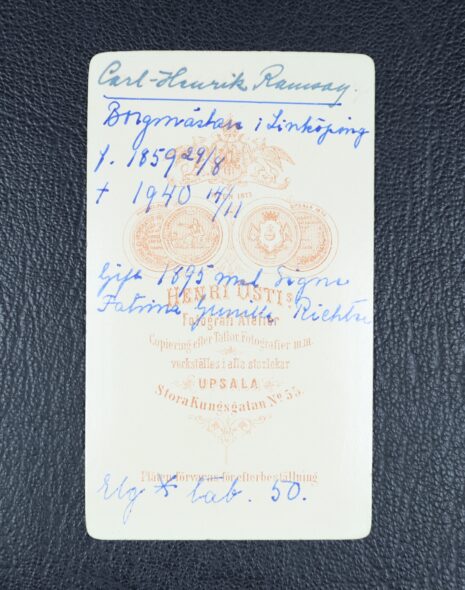 Carl-Henrik Ramsay.
Borgmästare i Linköping
f. 1859 29/8
† 1940 14/11
Gift 1895 med Signe
Gunilla Richter
HENRI OSTIs
Fotografi Atelier
Copiering efter Taflor Fotografier m.m.
verkställes i alla storlekar
UPSALA
Stora Kungsgatan No 55.
Plåten förvaras för efterbeställning
Elg * tab. 50.